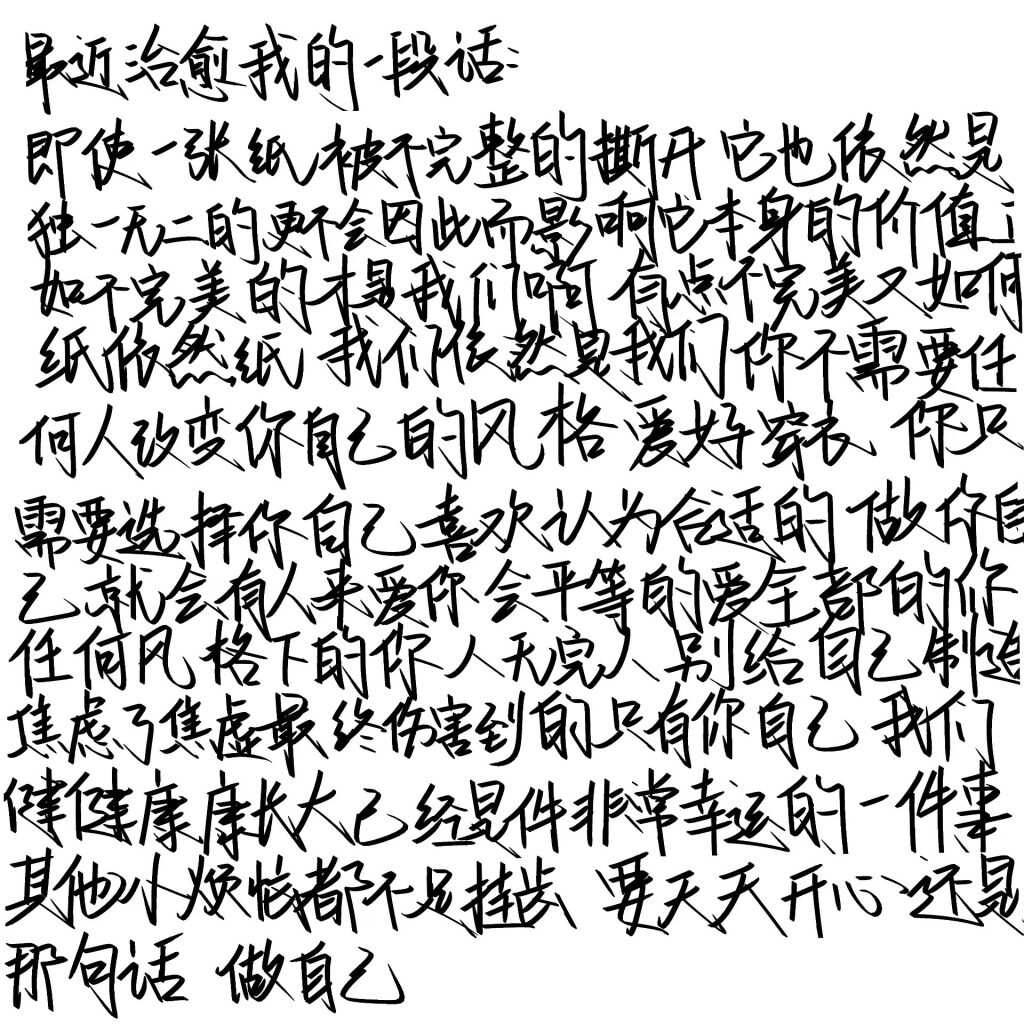 最近治愈我的一段话:
即使一张纸被不完整的撕开 它也依然是
独一无二的 更不会因此而影响它本身的价值 正
如不完美的才是我们啊 有点不完美又如何
纸依然纸 我们依然是我们 你不需要任
何人改变你自己的风格 爱好 穿衣 你只
需要选择你自己喜欢认为合适的 做你自
己 就会有人来爱你 会平等的爱全部的你
任何风格下的你 人无完人 别给自己制造
焦虑了 焦虑最终伤害到的只有你自己 我们
健健康康长大已经是件非常幸运的一件事
其他小烦恼都不足挂齿 要天天开心 还是
那句话 做自己